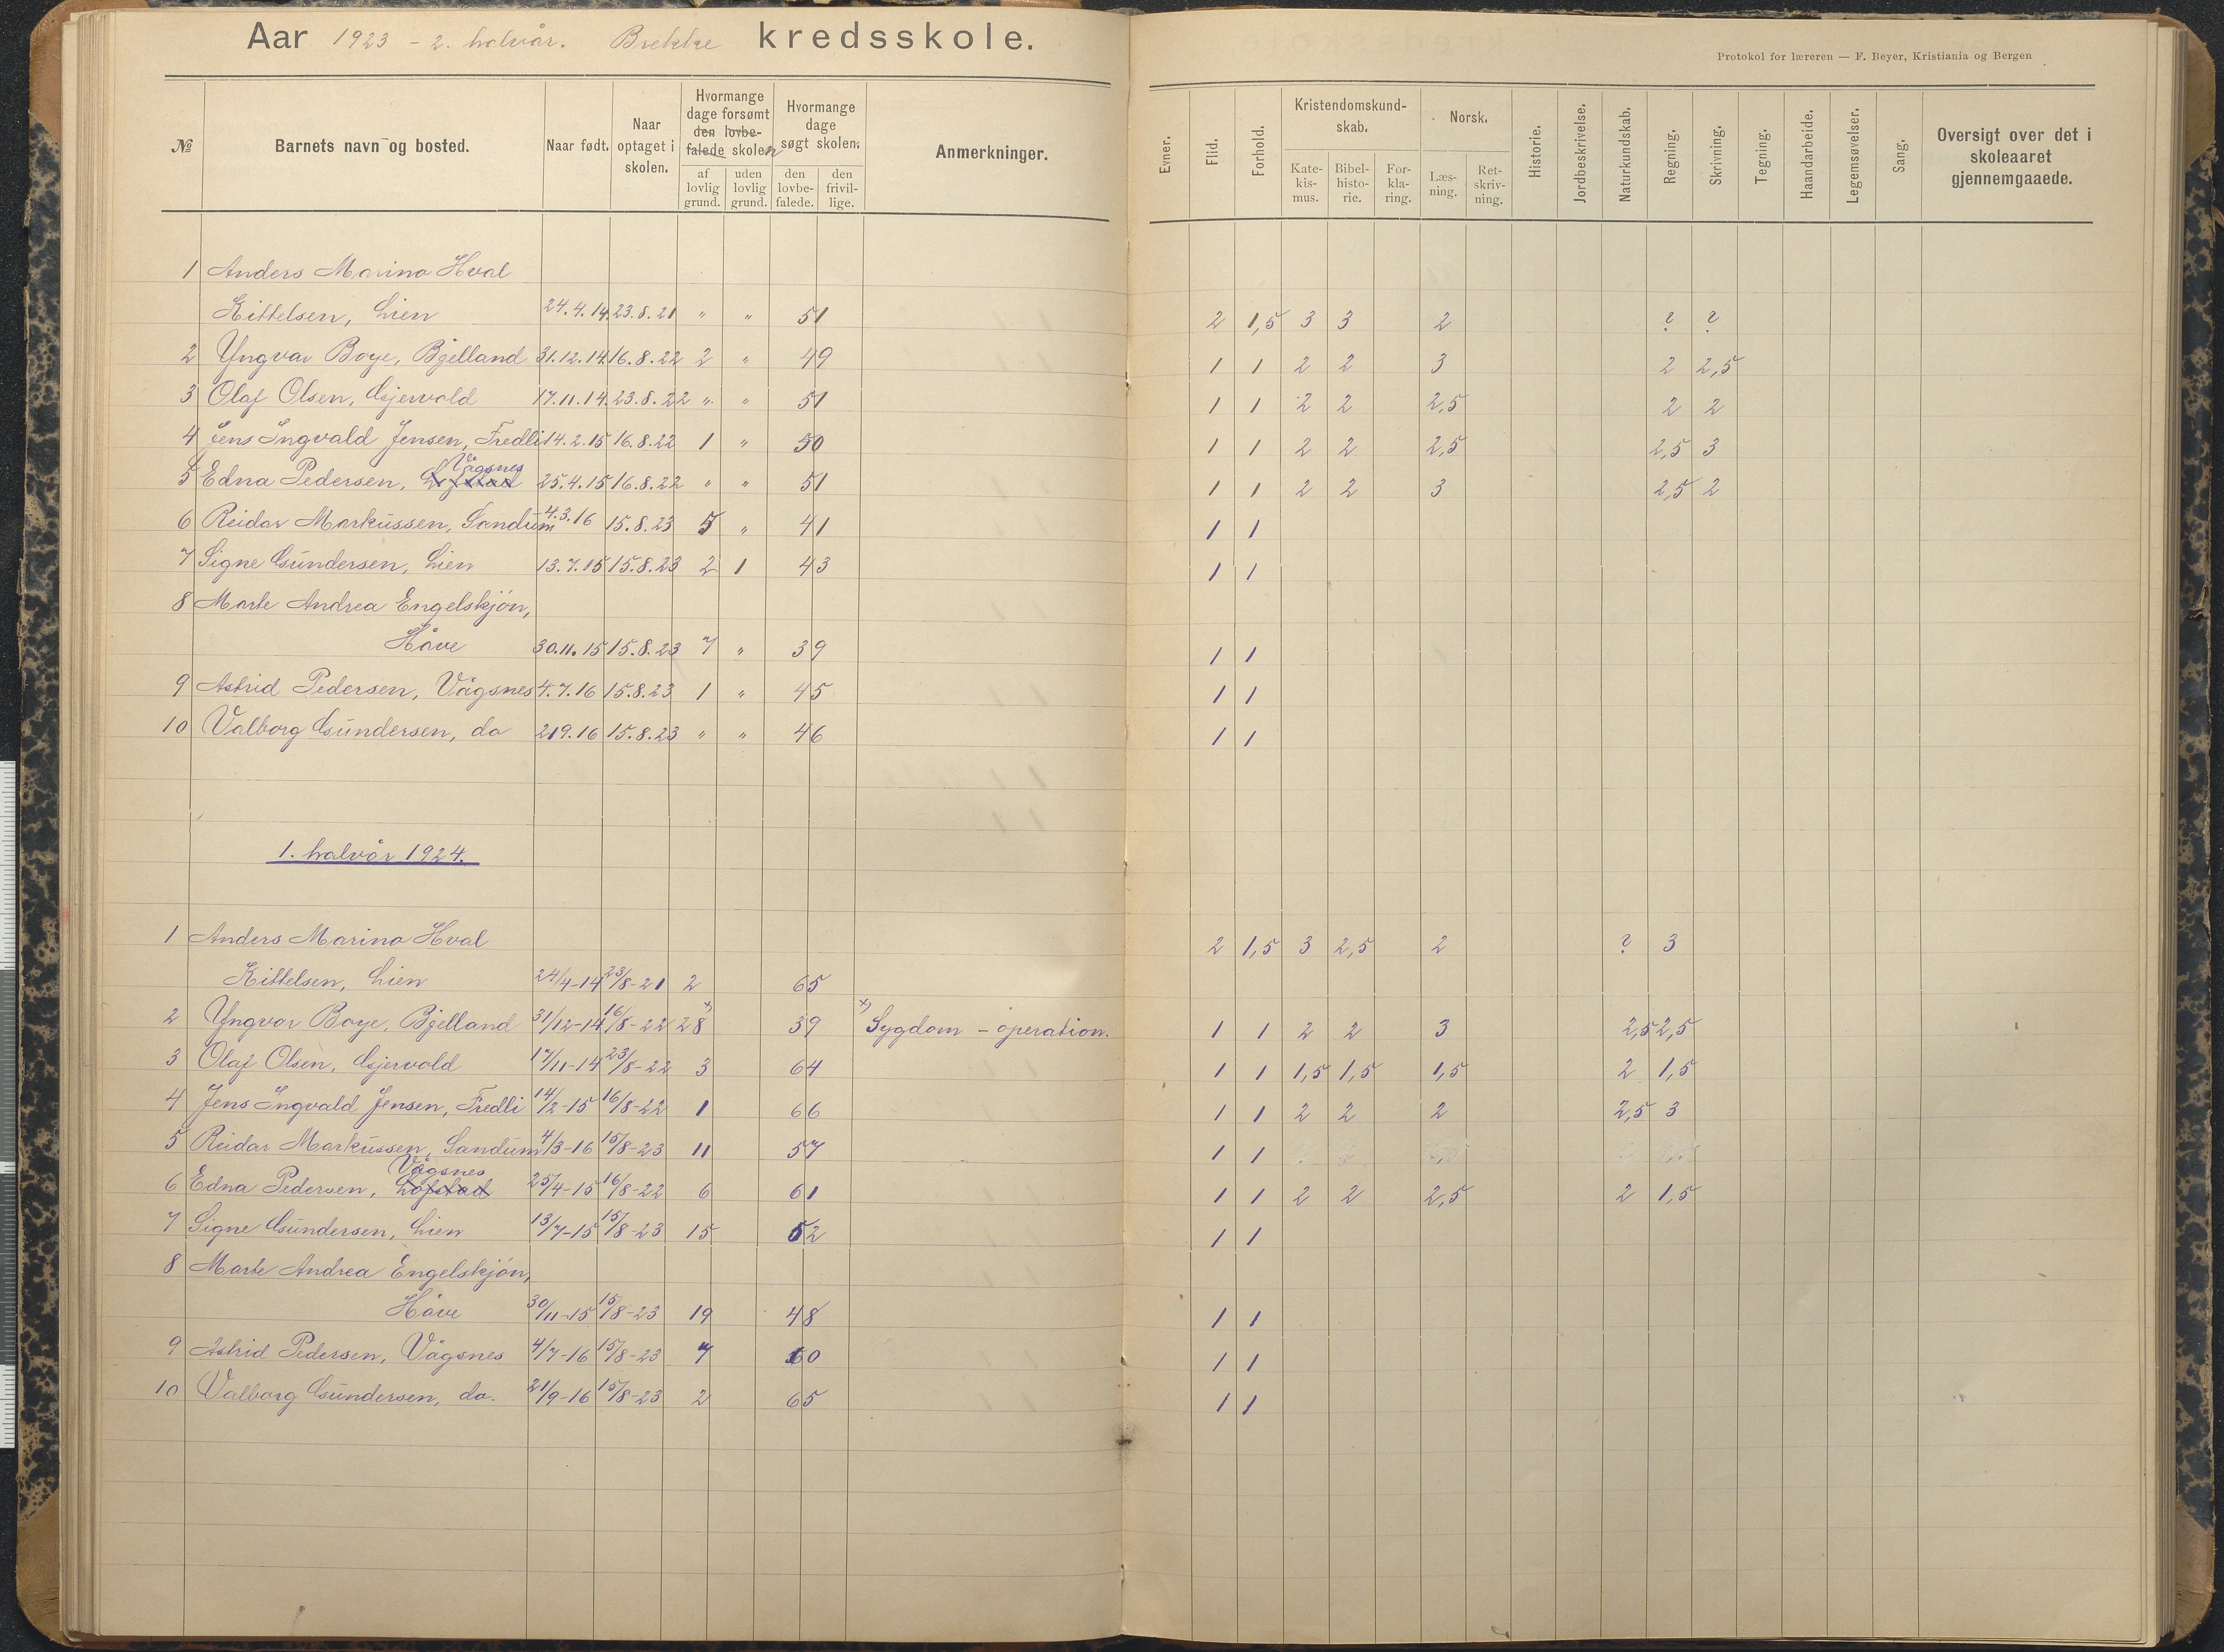 Aar 1923 - 2. halvår. Brekke kredsskole.
Protokol for læreren — F. Beyer, Kristiania og Bergen
№ Barnets navn og bosted. Naar født. Naar optaget i skolen. Hvormange dage forsømt den lovbefalede skolen Hvormange dage søgt skolen. Anmerkninger.
af lovlig grund. uden lovlig grund. den lovbefalede. den frivillige.
Evner. Flid. Forhold. Kristendomskundskab. Norsk. Historie. Jordbeskrivelse. Naturkundskab. Regning. Skrivning. Tegning. Haandarbeide. Legemsøvelser. Sang. Oversigt over det i skoleaaret gjennemgaaede.
Katekismus. Bibelhistorie. Forklaring. Læsning. Retskrivning.
1 Anders Marino Hval
Kittelsen, Lien 24.4.14. 23.8.21 " " 51 2 1,5 3 3 2 ? ?
2 Yngvar Boye, Bjelland 31.12.14 16.8.22 2 " 49 1 1 2 2 3 2 2,5
3 Olaf Olsen, Gjervold 17.11.14. 23.8.22 " " 51 1 1 2 2 2,5 2 2
4 Jens Ingvald Jensen, Fredli 14.2.15 16.8.22 1 " 50 1 1 2 2 2,5 2,5 3
Vågsnes
5 Edna Pedersen, 25.4.15 16.8.22 " " 51 1 1 2 2 3 2,5 2
6 Reidar Markussen, Sandum 4.3.16 15.8.23 5 " 41 1 1
7 Signe Gundersen, Lien 13.7.15 15.8.23 2 1 43 1 1
8 Marte Andrea Engelskjøn,
Håve 30.11.15 15.8.23 7 " 39 1 1
9 Astrid Pedersen, Vågsnes 4.7.16 15.8.23 1 " 45 1 1
10 Valborg Gundersen, do 21.9.16 15.8.23 " " 46 1 1
1. halvår 1924.
1 Anders Marino Hval 2 1,5 3 2,5 2 ? 3
Kittelsen, Lien 24/4-14 23/8-21 2 65
2 Yngvar Boye, Bjelland 31/12-14 16/8-22 28 x) 39 x) Sygdom - operation. 1 1 2 2 3 2,5 2,5
3 Olaf Olsen, Gjervold 17/11-14 23/8-22 3 64 1 1 1,5 1,5 1,5 2 1,5
4 Jens Ingvald Jensen, Fredli 14/2-15 16/8-22 1 66 1 1 2 2 2 2,5 3
5 Reidar Markussen, Sandum 4/3-16 15/8-23 11 57 1 1
Vågsnes
6 Edna Pedersen, Lofstad 25/4-15 16/8-22 6 61 1 1 2 2 2,5 2 1,5
7 Signe Gundersen, Lien 13/7-15 15/8-23 15 52 1 1
8 Marte Andrea Engelskjøn,
Håve 30/11-15 15/8-23 19 48 1 1
9 Astrid Pedersen, Vågsnes 4/7-16 15/8-23 7 60 1 1
10 Valborg Gundersen, do. 21/9-16 15/8-23 2 65 1 1